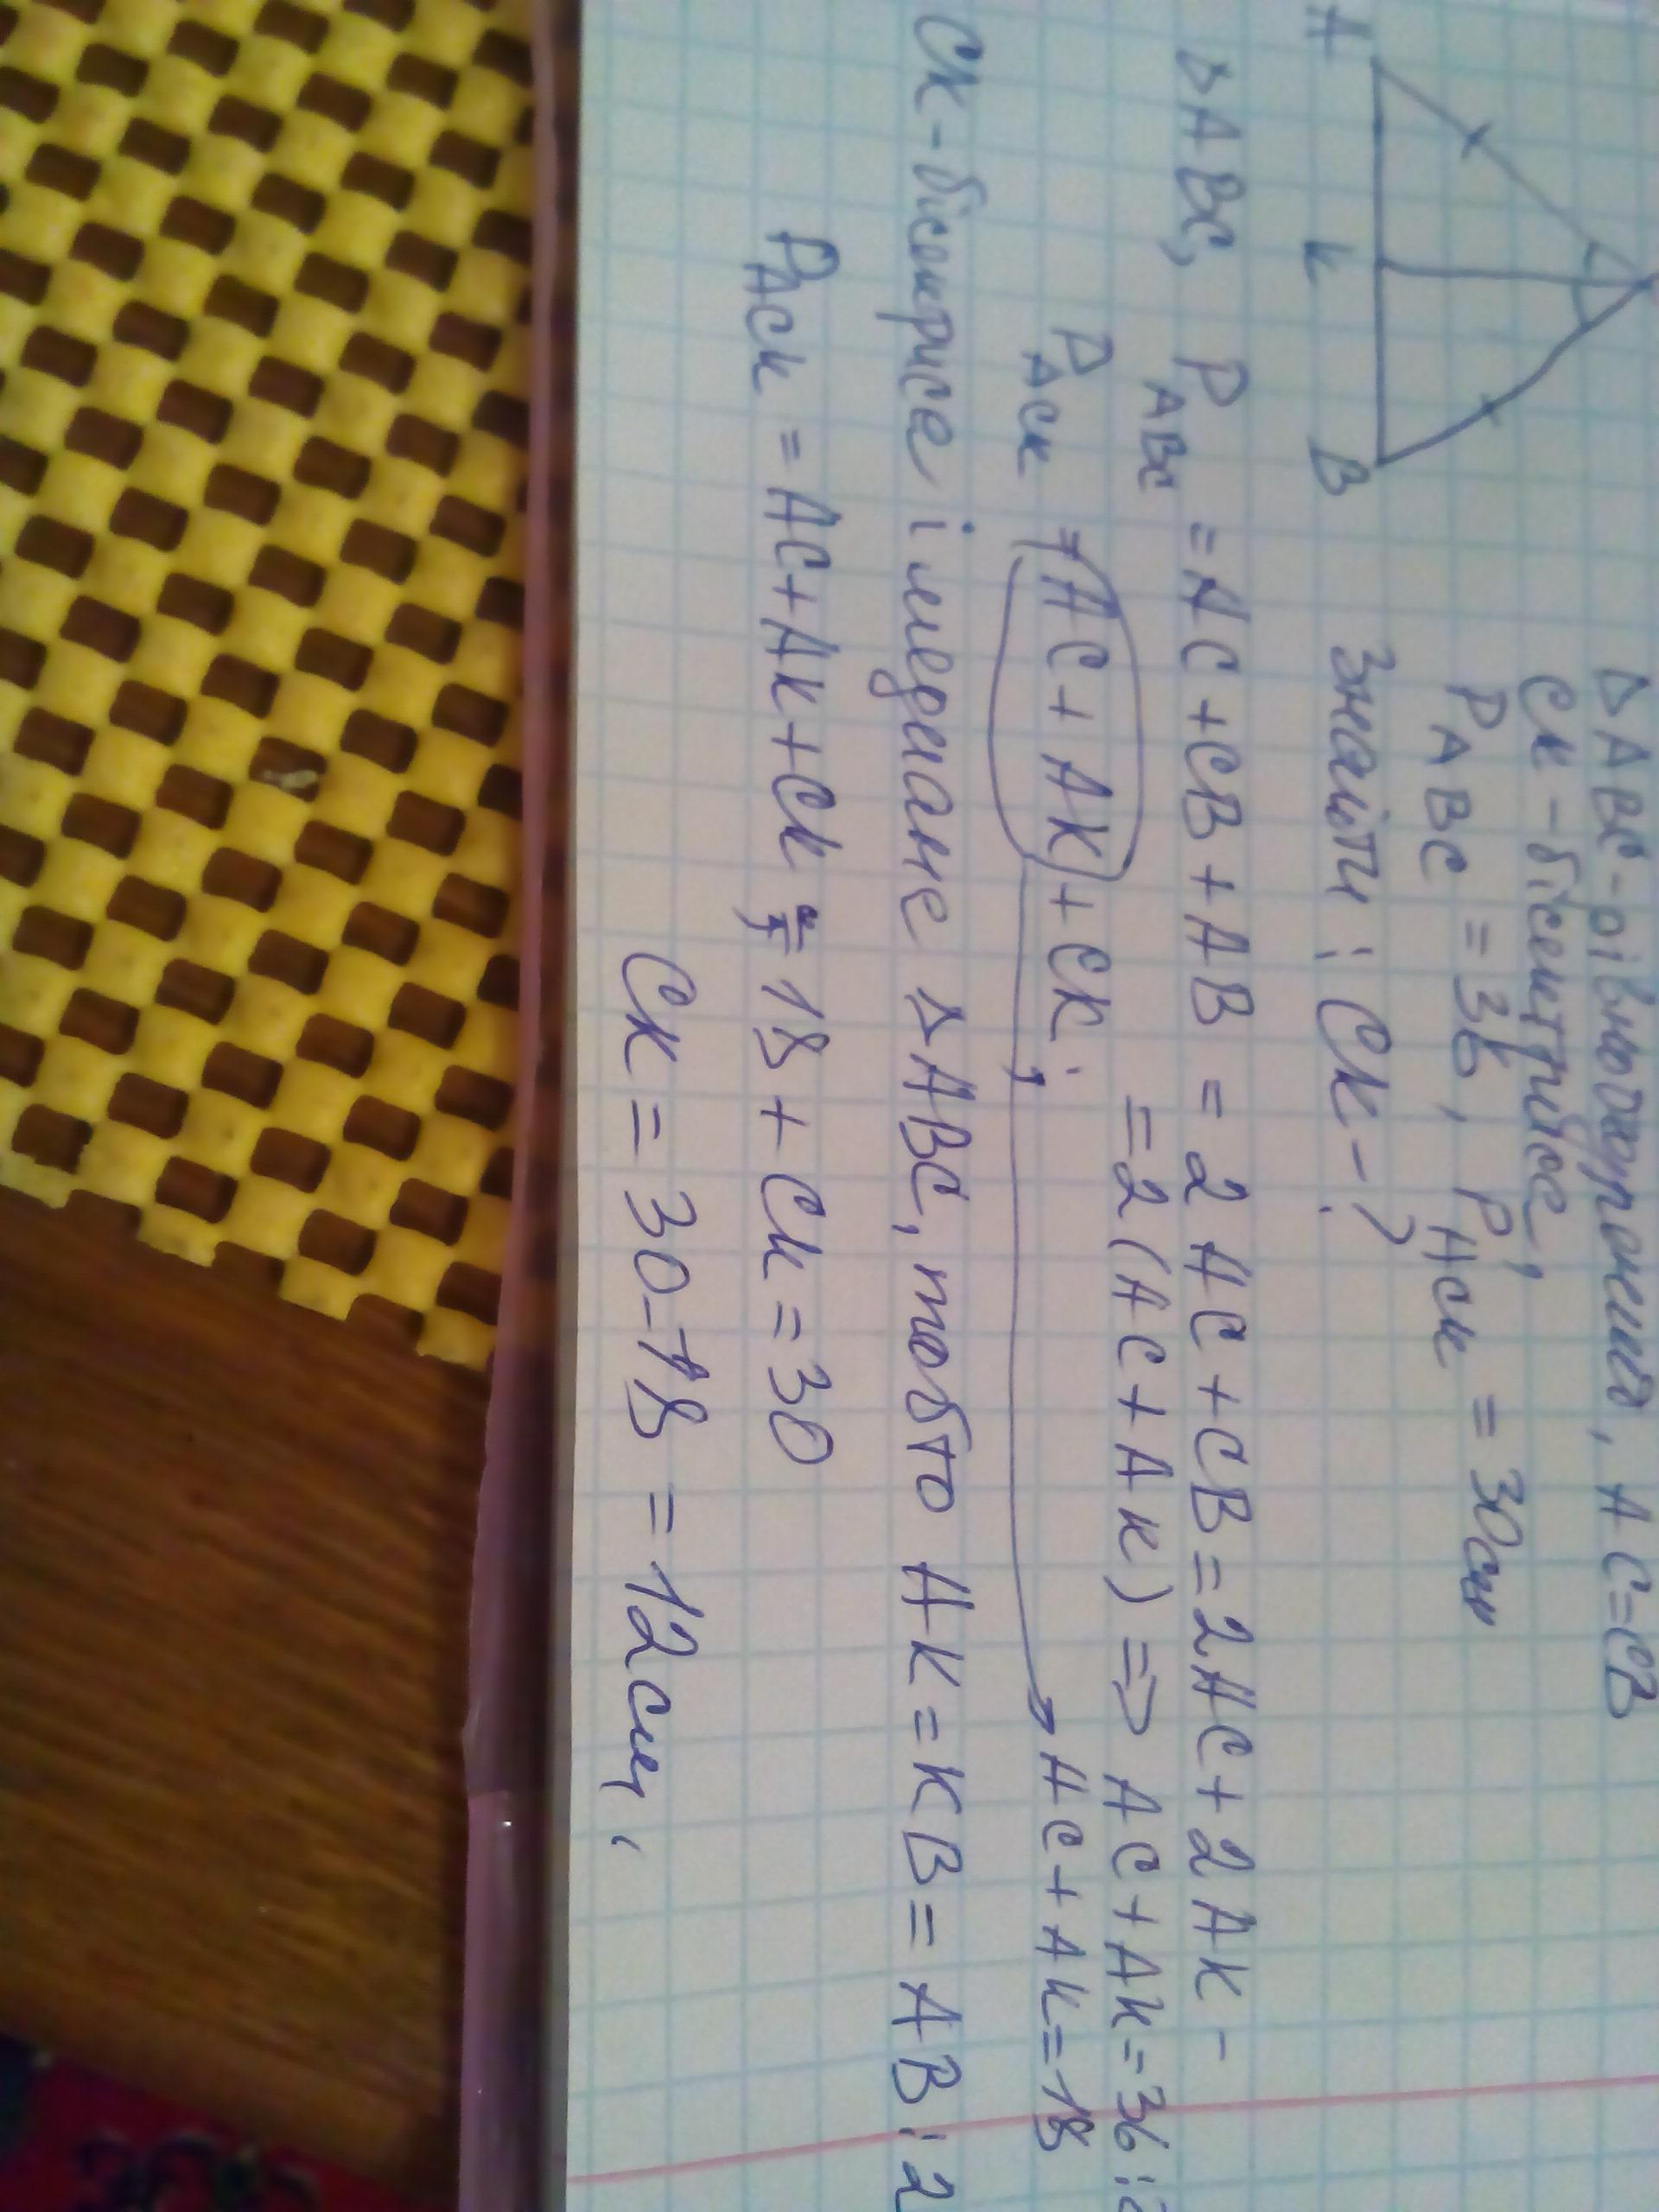 Δ ABC - рівнобедрений, AC=CB
CK - бісектрисе,
P ABC = 36, P ACK = 30см
Знайти : CK - ?
A K B
Δ ABC, P ABC = AC + CB + AB = 2AC + CB = 2AC + 2AK -
= 2(AC + AK) => AC + AK = 36 : 2
P ACK = AC + AK + CK; AC + AK = 18
CK - бісектрисе і медиане Δ ABC, тобто AK = KB = AB : 2
P ACK = AC + AK + CK = 18 + CK = 30
CK = 30 - 18 = 12см,